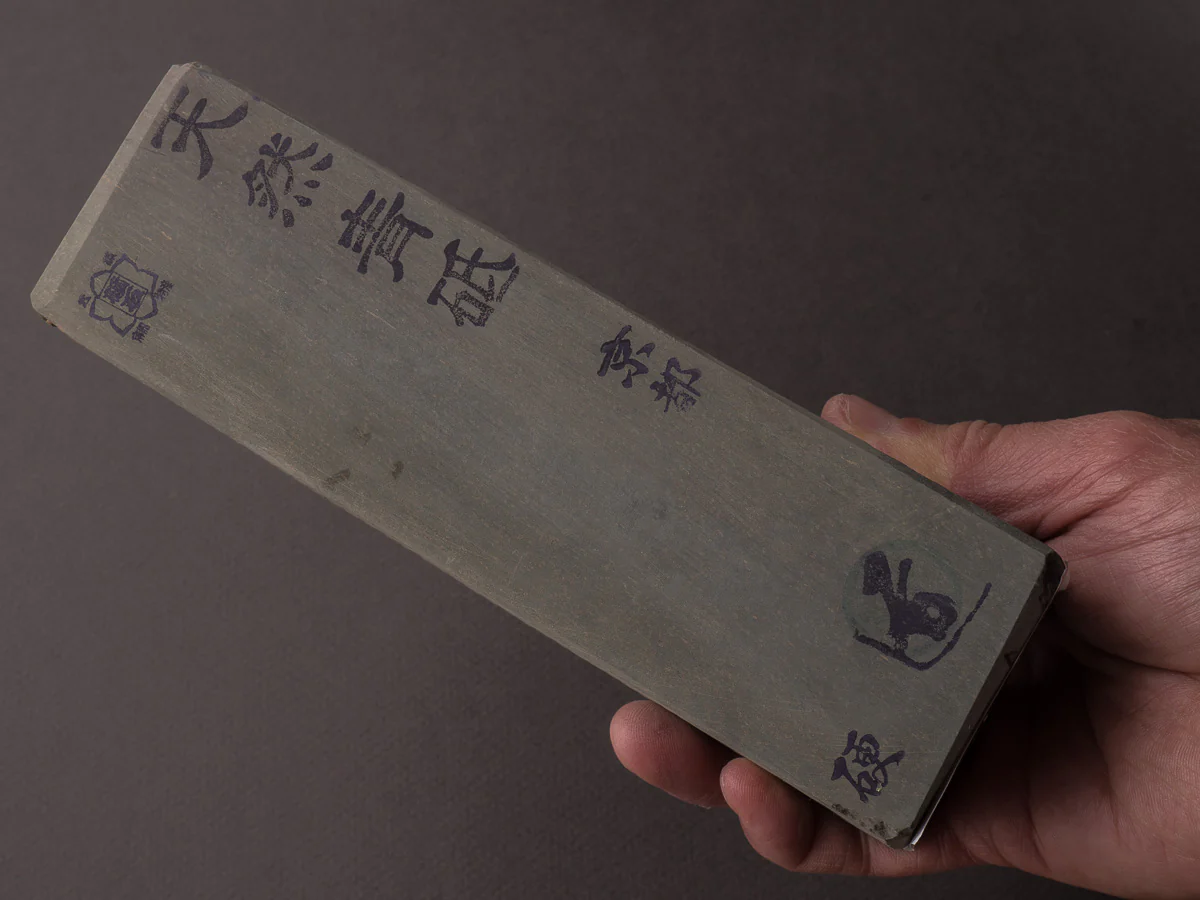 天然青砥 京都
硬